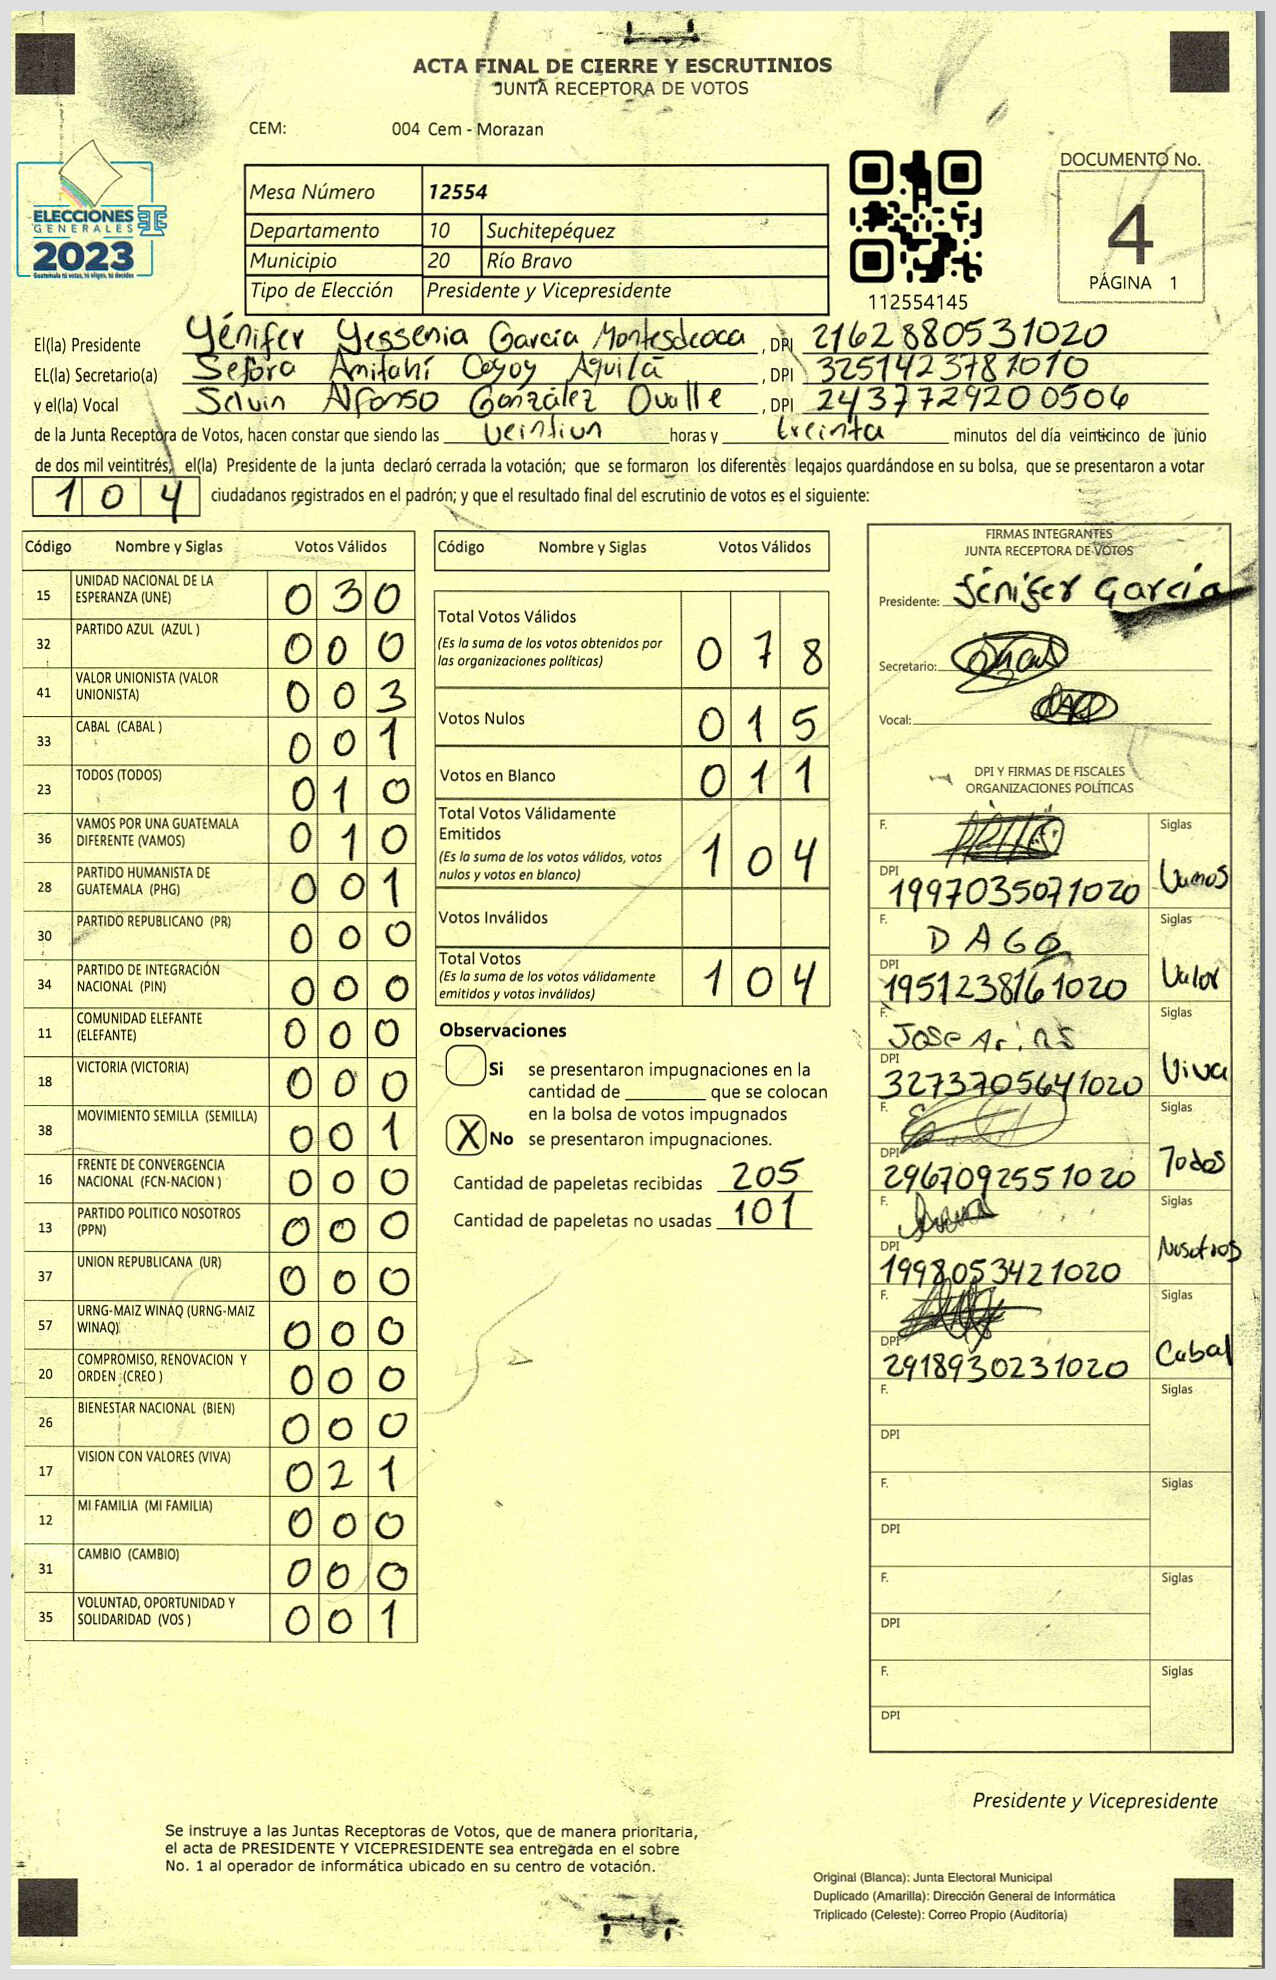 ACTA FINAL DE CIERRE Y ESCRUTINIOS
JUNTA RECEPTORA DE VOTOS
CEM: 004 Cem - Morazan
ELECCIONES
GENERALES
2023
Guatemala tú votas, tú eliges, tú decides
Mesa Número 12554
Departamento 10 Suchitepéquez
Municipio 20 Río Bravo
Tipo de Elección Presidente y Vicepresidente
112554145
DOCUMENTO No.
4
PÁGINA 1
El(la) Presidente Yénifer Yessenia García Montesdeoca, DPI 2162880531020
EL(la) Secretario(a) Sefora Amitahí Coyoy Aguilá, DPI 3251423781010
y el(la) Vocal Selvin Alfonso González Ovalle, DPI 2437729200506
de la Junta Receptora de Votos, hacen constar que siendo las veintiun horas y treinta minutos del día veinticinco de junio
de dos mil veintitrés, el(la) Presidente de la junta declaró cerrada la votación; que se formaron los diferentes legajos quardándose en su bolsa, que se presentaron a votar
104 ciudadanos registrados en el padrón; y que el resultado final del escrutinio de votos es el siguiente:
Código Nombre y Siglas Votos Válidos
15 UNIDAD NACIONAL DE LA ESPERANZA (UNE) 030
32 PARTIDO AZUL (AZUL ) 000
41 VALOR UNIONISTA (VALOR UNIONISTA) 003
33 CABAL (CABAL ) 001
23 TODOS (TODOS) 010
36 VAMOS POR UNA GUATEMALA DIFERENTE (VAMOS) 010
28 PARTIDO HUMANISTA DE GUATEMALA (PHG) 001
30 PARTIDO REPUBLICANO (PR) 000
34 PARTIDO DE INTEGRACIÓN NACIONAL (PIN) 000
11 COMUNIDAD ELEFANTE (ELEFANTE) 000
18 VICTORIA (VICTORIA) 000
38 MOVIMIENTO SEMILLA (SEMILLA) 001
16 FRENTE DE CONVERGENCIA NACIONAL (FCN-NACION ) 000
13 PARTIDO POLITICO NOSOTROS (PPN) 000
37 UNION REPUBLICANA (UR) 000
57 URNG-MAIZ WINAQ (URNG-MAIZ WINAQ) 000
20 COMPROMISO, RENOVACION Y ORDEN (CREO ) 000
26 BIENESTAR NACIONAL (BIEN) 000
17 VISION CON VALORES (VIVA) 021
12 MI FAMILIA (MI FAMILIA) 000
31 CAMBIO (CAMBIO) 000
35 VOLUNTAD, OPORTUNIDAD Y SOLIDARIDAD (VOS ) 001
Código Nombre y Siglas Votos Válidos
Total Votos Válidos 078
(Es la suma de los votos obtenidos por
las organizaciones políticas)
Votos Nulos 015
Votos en Blanco 011
Total Votos Válidamente
Emitidos 104
(Es la suma de los votos válidos, votos
nulos y votos en blanco)
Votos Inválidos
Total Votos 104
(Es la suma de los votos válidamente
emitidos y votos inválidos)
Observaciones
Si se presentaron impugnaciones en la
cantidad de ________ que se colocan
en la bolsa de votos impugnados
X No se presentaron impugnaciones.
Cantidad de papeletas recibidas 205
Cantidad de papeletas no usadas 101
FIRMAS INTEGRANTES
JUNTA RECEPTORA DE VOTOS
Presidente: Jénifer García
Secretario:
Vocal:
DPI Y FIRMAS DE FISCALES
ORGANIZACIONES POLÍTICAS
F. Siglas
DPI 1997035071020 Vamos
F. DAGO Siglas
DPI 1951238161020 Valor
F. Jose Siglas
DPI 3273705641020 Viva
F. Siglas
DPI 2967092551020 Todos
F. Siglas
DPI 1998053421020 Nosotros
F. Siglas
DPI 2918930231020 Cabal
F. Siglas
DPI
F. Siglas
DPI
F. Siglas
DPI
F. Siglas
DPI
Presidente y Vicepresidente
Se instruye a las Juntas Receptoras de Votos, que de manera prioritaria,
el acta de PRESIDENTE Y VICEPRESIDENTE sea entregada en el sobre
No. 1 al operador de informática ubicado en su centro de votación.
Original (Blanca): Junta Electoral Municipal
Duplicado (Amarilla): Dirección General de Informática
Triplicado (Celeste): Correo Propio (Auditoría)